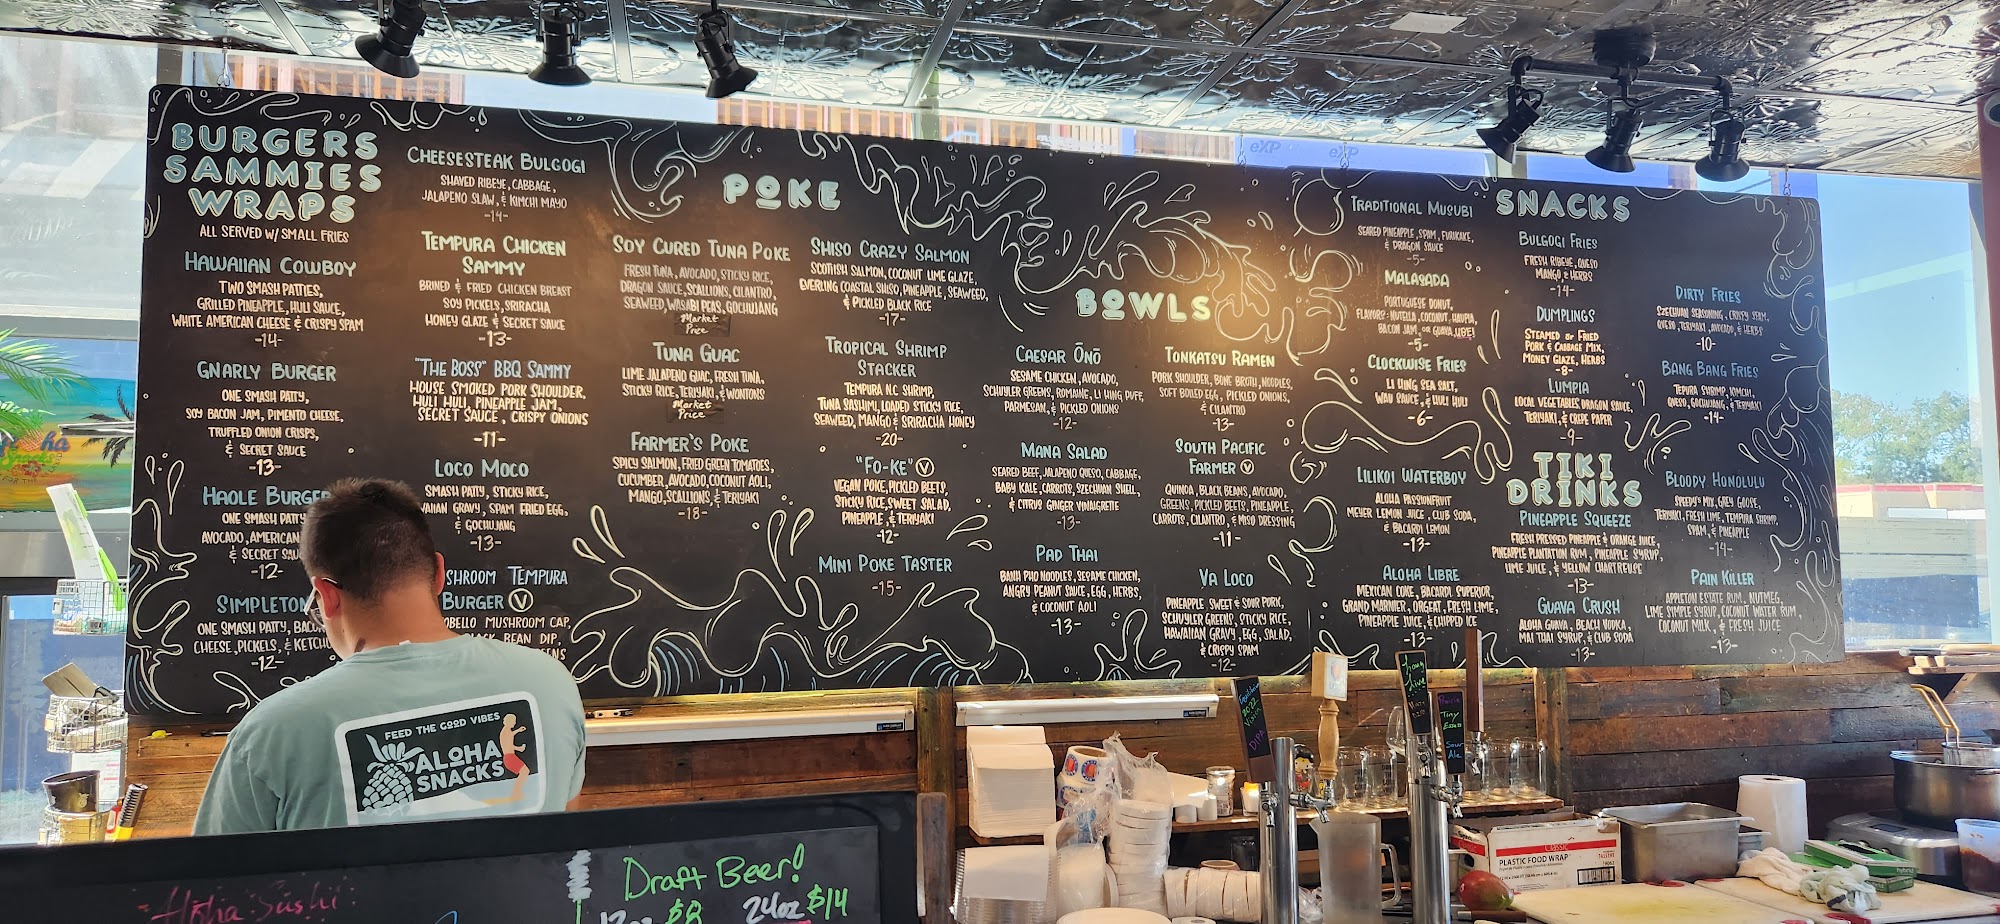 BURGERS
SAMMIES
WRAPS
ALL SERVED W/ SMALL FRIES
HAWAIIAN COWBOY
TWO SMASH PATTIES,
GRILLED PINEAPPLE, HULI SAUCE,
WHITE AMERICAN CHEESE & CRISPY SPAM
-14-
GNARLY BURGER
ONE SMASH PATTY,
SOY BACON JAM, PIMENTO CHEESE,
TRUFFLED ONION CRISPS,
& SECRET SAUCE
-13-
HAOLE BURGER
ONE SMASH PATTY
AVOCADO, AMERICAN
& SECRET SAU
-12-
SIMPLETON
ONE SMASH PATTY, BACO
CHEESE, PICKELS, & KETCHU
-12-
CHEESESTEAK BULGOGI
SHAVED RIBEYE, CABBAGE,
JALAPENO SLAW, & KIMCHI MAYO
-14-
TEMPURA CHICKEN
SAMMY
BRINED & FRIED CHICKEN BREAST
SOY PICKELS, SRIRACHA
HONEY GLAZE & SECRET SAUCE
-13-
"THE BOSS" BBQ SAMMY
HOUSE SMOKED PORK SHOULDER,
HULI HULI, PINEAPPLE JAM,
SECRET SAUCE, CRISPY ONIONS
-11-
LOCO MOCO
SMASH PATTY, STICKY RICE,
WAIIAN GRAVY, SPAM FRIED EGG,
& GOCHUJANG
-13-
SHROOM TEMPURA
BURGER V
OBELLO MUSHROOM CAP,
ACK BEAN DIP,
EENS
POKE
SOY CURED TUNA POKE
FRESH TUNA, AVOCADO, STICKY RICE,
DRAGON SAUCE, SCALLIONS, CILANTRO,
SEAWEED, WASABI PEAS, GOCHUJANG
Market
Price
TUNA GUAC
LIME JALAPENO GUAC, FRESH TUNA,
STICKY RICE, TERIYAKI, & WONTONS
Market
Price
FARMER'S POKE
SPICY SALMON, FRIED GREEN TOMATOES,
CUCUMBER, AVOCADO, COCONUT AOLI,
MANGO, SCALLIONS, & TERIYAKI
-18-
SHISO CRAZY SALMON
SCOTTISH SALMON, COCONUT LIME GLAZE,
EVERLING COASTAL SHISO, PINEAPPLE, SEAWEED,
& PICKLED BLACK RICE
-17-
TROPICAL SHRIMP
STACKER
TEMPURA N.C. SHRIMP,
TUNA SASHIMI, LOADED STICKY RICE,
SEAWEED, MANGO & SRIRACHA HONEY
-20-
"FO-KE" V
VEGAN POKE, PICKLED BEETS,
STICKY RICE, SWEET SALAD,
PINEAPPLE, & TERIYAKI
-12-
MINI POKE TASTER
-15-
BOWLS
CAESAR ŌNŌ
SESAME CHICKEN, AVOCADO,
SCHUYLER GREENS, ROMAINE, LI HING PUFF,
PARMESAN, & PICKLED ONIONS
-12-
MANA SALAD
SEARED BEEF, JALAPENO QUESO, CABBAGE,
BABY KALE, CARROTS, SZECHUAN SHELL,
& CITRUS GINGER VINAIGRETTE
-13-
PAD THAI
BANH PHO NOODLES, SESAME CHICKEN,
ANGRY PEANUT SAUCE, EGG, HERBS,
& COCONUT AOLI
-13-
TONKATSU RAMEN
PORK SHOULDER, BONE BROTH, NOODLES,
SOFT BOILED EGG, PICKLED ONIONS,
& CILANTRO
-13-
SOUTH PACIFIC
FARMER V
QUINOA, BLACK BEANS, AVOCADO,
GREENS, PICKLED BEETS, PINEAPPLE,
CARROTS, CILANTRO, & MISO DRESSING
-11-
VA LOCO
PINEAPPLE SWEET & SOUR PORK,
SCHUYLER GREENS, STICKY RICE,
HAWAIIAN GRAVY, EGG, SALAD,
& CRISPY SPAM
-12-
SNACKS
TRADITIONAL MUSUBI
SEARED PINEAPPLE, SPAM, FURIKAKE,
& DRAGON SAUCE
-5-
MALASADA
PORTUGUESE DONUT,
FLAVORS: NUTELLA, COCONUT, HAUPIA,
BACON JAM, OR GUAVA, UBE!
-5-
CLOCKWISE FRIES
LI HING SEA SALT,
WAU SAUCE, & HULI HULI
-6-
BULGOGI FRIES
FRESH RIBEYE, QUESO
MANGO & HERBS
-14-
DUMPLINGS
STEAMED OR FRIED
PORK & CABBAGE MIX,
MONEY GLAZE, HERBS
-8-
LUMPIA
LOCAL VEGETABLES, DRAGON SAUCE,
TERIYAKI, & CREPE PAPER
-9-
DIRTY FRIES
SZECHUAN SEASONING, CRISPY SPAM,
QUESO, TERIYAKI, AVOCADO, & HERBS
-10-
BANG BANG FRIES
TEPURA SHRIMP, KIMCHI,
QUESO, GOCHUJANG, & TERIYAKI
-14-
TIKI
DRINKS
LILIKOI WATERBOY
ALOHA PASSIONFRUIT
MEYER LEMON JUICE, CLUB SODA,
& BACARDI LEMON
-13-
ALOHA LIBRE
MEXICAN COKE, BACARDI SUPERIOR,
GRAND MARNIER, ORGEAT, FRESH LIME,
PINEAPPLE JUICE, & CHIPPED ICE
-13-
PINEAPPLE SQUEEZE
FRESH PRESSED PINEAPPLE & ORANGE JUICE,
PINEAPPLE PLANTATION RUM, PINEAPPLE SYRUP,
LIME JUICE, & YELLOW CHARTREUSE
-13-
GUAVA CRUSH
ALOHA GUAVA, BEACH VODKA,
MAI THAI SYRUP, & CLUB SODA
-13-
BLOODY HONOLULU
SPEEDY'S MIX, GREY GOOSE,
TERIYAKI, FRESH LIME, TEMPURA SHRIMP,
SPAM, & PINEAPPLE
-14-
PAIN KILLER
APPLETON ESTATE RUM, NUTMEG,
LIME SIMPLE SYRUP, COCONUT WATER RUM,
COCONUT MILK, & FRESH JUICE
-13-
eXP
eXP
FEED THE GOOD VIBES
ALOHA
SNACKS
Aloha Sushi
Draft Beer!
12oz $8 24oz $14
DIPA
Tiny
Sour
Ale
CLASSIC
PLASTIC FOOD WRAP